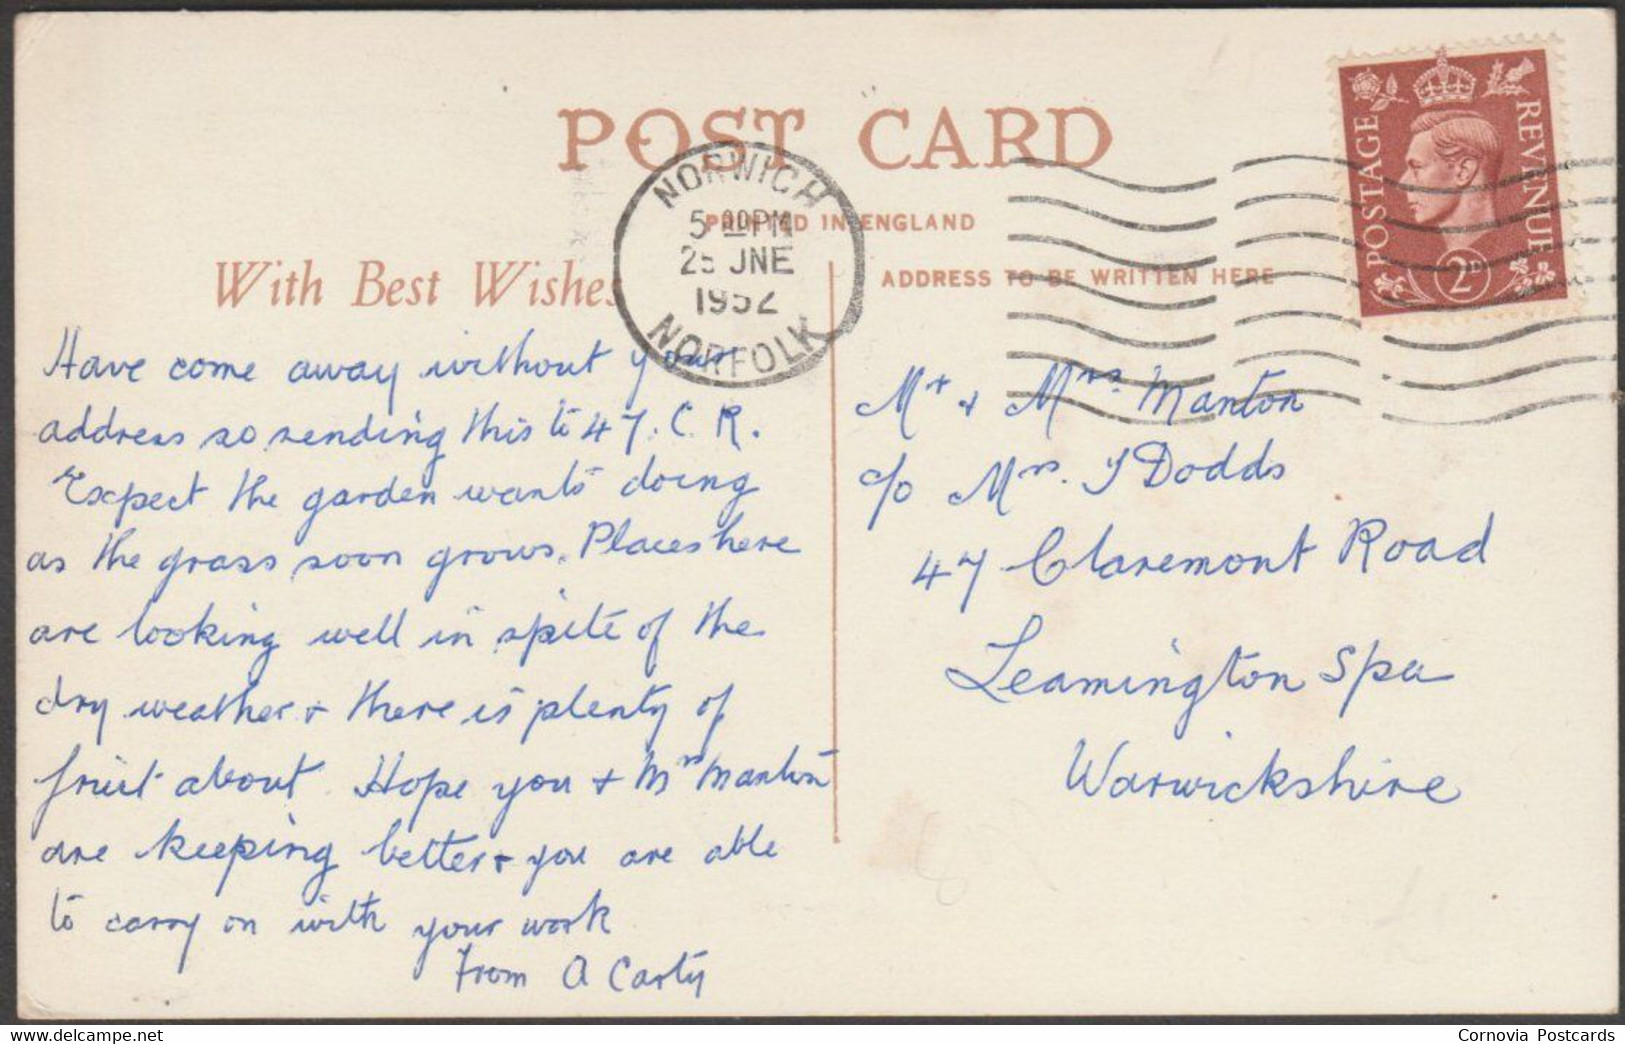 POST CARD
PRINTED IN ENGLAND
With Best Wishes
ADDRESS TO BE WRITTEN HERE
NORWICH
5 00PM
25 JNE
1952
NORFOLK
POSTAGE
REVENUE
2D
Have come away without your
address so sending this to 47. C. R.
Expect the garden wants doing
as the grass soon grows. Places here
are looking well in spite of the
dry weather + there is plenty of
fruit about. Hope you + Mrs Manton
are keeping better + you are able
to carry on with your work
From A Carty
Mr + Mrs. Manton
c/o Mrs. J Dodds
47 Claremont Road
Leamington Spa
Warwickshire
Cornovia Postcards